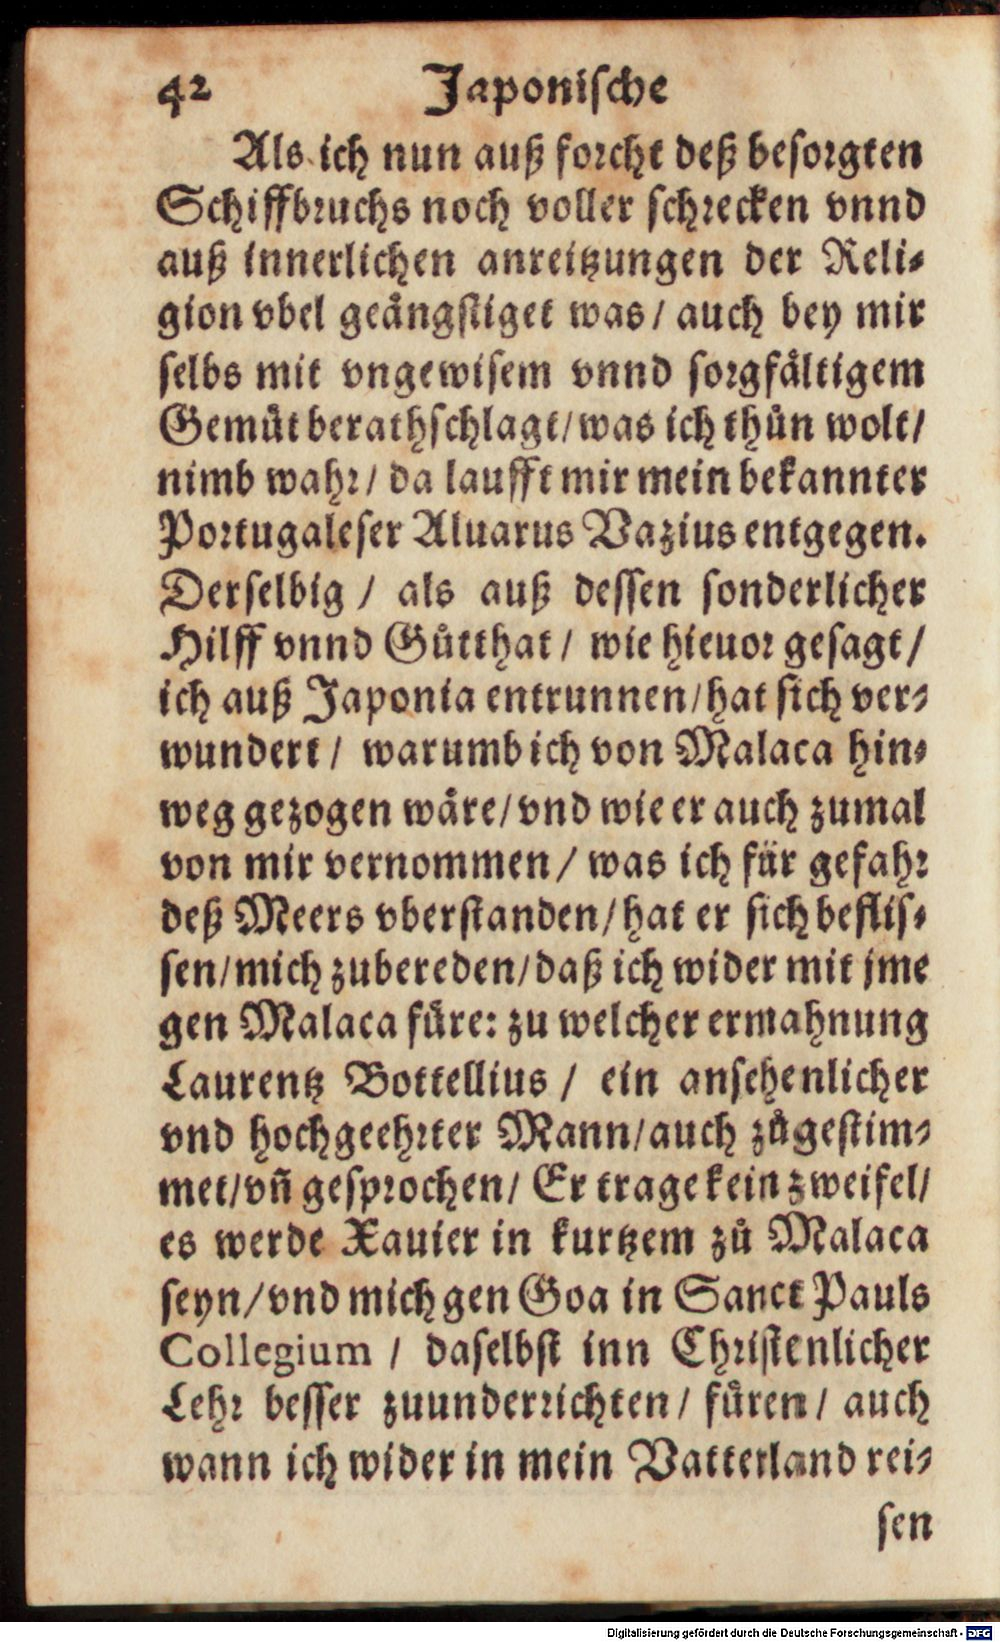 42 Japonische
Als ich nun auß forcht deß besorgten
Schiffbruchs noch voller schrecken vnnd
auß innerlichen anreitzungen der Reli-
gion vbel geängstiget was/ auch bey mir
selbs mit vngewisem vnnd sorgfältigem
Gemüt berathschlagt/ was ich thůn wolt/
nimb wahr/ da laufft mir mein bekannter
Portugaleser Aluarus Vazius entgegen.
Derselbig / als auß dessen sonderlicher
Hilff vnnd Gůtthat / wie hieuor gesagt/
ich auß Japonia entrunnen/ hat sich ver-
wundert / warumb ich von Malaca hin-
weg gezogen wäre/ vnd wie er auch zumal
von mir vernommen / was ich für gefahr
deß Meers vberstanden/ hat er sich beflis-
sen/ mich zubereden/ daß ich wider mit jme
gen Malaca füre: zu welcher ermahnung
Laurentz Bottellius / ein ansehenlicher
vnd hochgeehrter Mann/ auch zůgestim-
met/ vñ gesprochen/ Er trage kein zweifel/
es werde Xauier in kurtzem zů Malaca
seyn/ vnd mich gen Goa in Sanct Pauls
Collegium / daselbst inn Christenlicher
Lehr besser zuunderrichten/ füren/ auch
wann ich wider in mein Vatterland rei-
sen
Digitalisierung gefördert durch die Deutsche Forschungsgemeinschaft - DFG